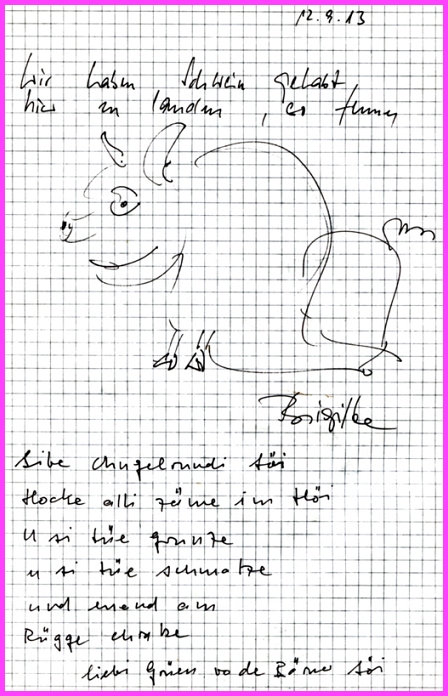 12.9.13
Wir haben Schwein gehabt,
hier zu landen, es
Sibe chugelrundi Söi
Hocke alli zäme im Höi
U si tüe grunze
u si tüe schmatze
und enand am
Rügge chratze
liebi Grüess vo de Bärner Söi